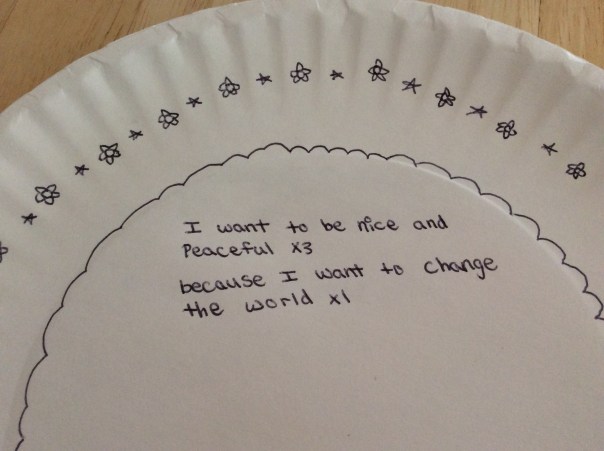 I want to be nice and
Peaceful x3
because I want to change
the world x1